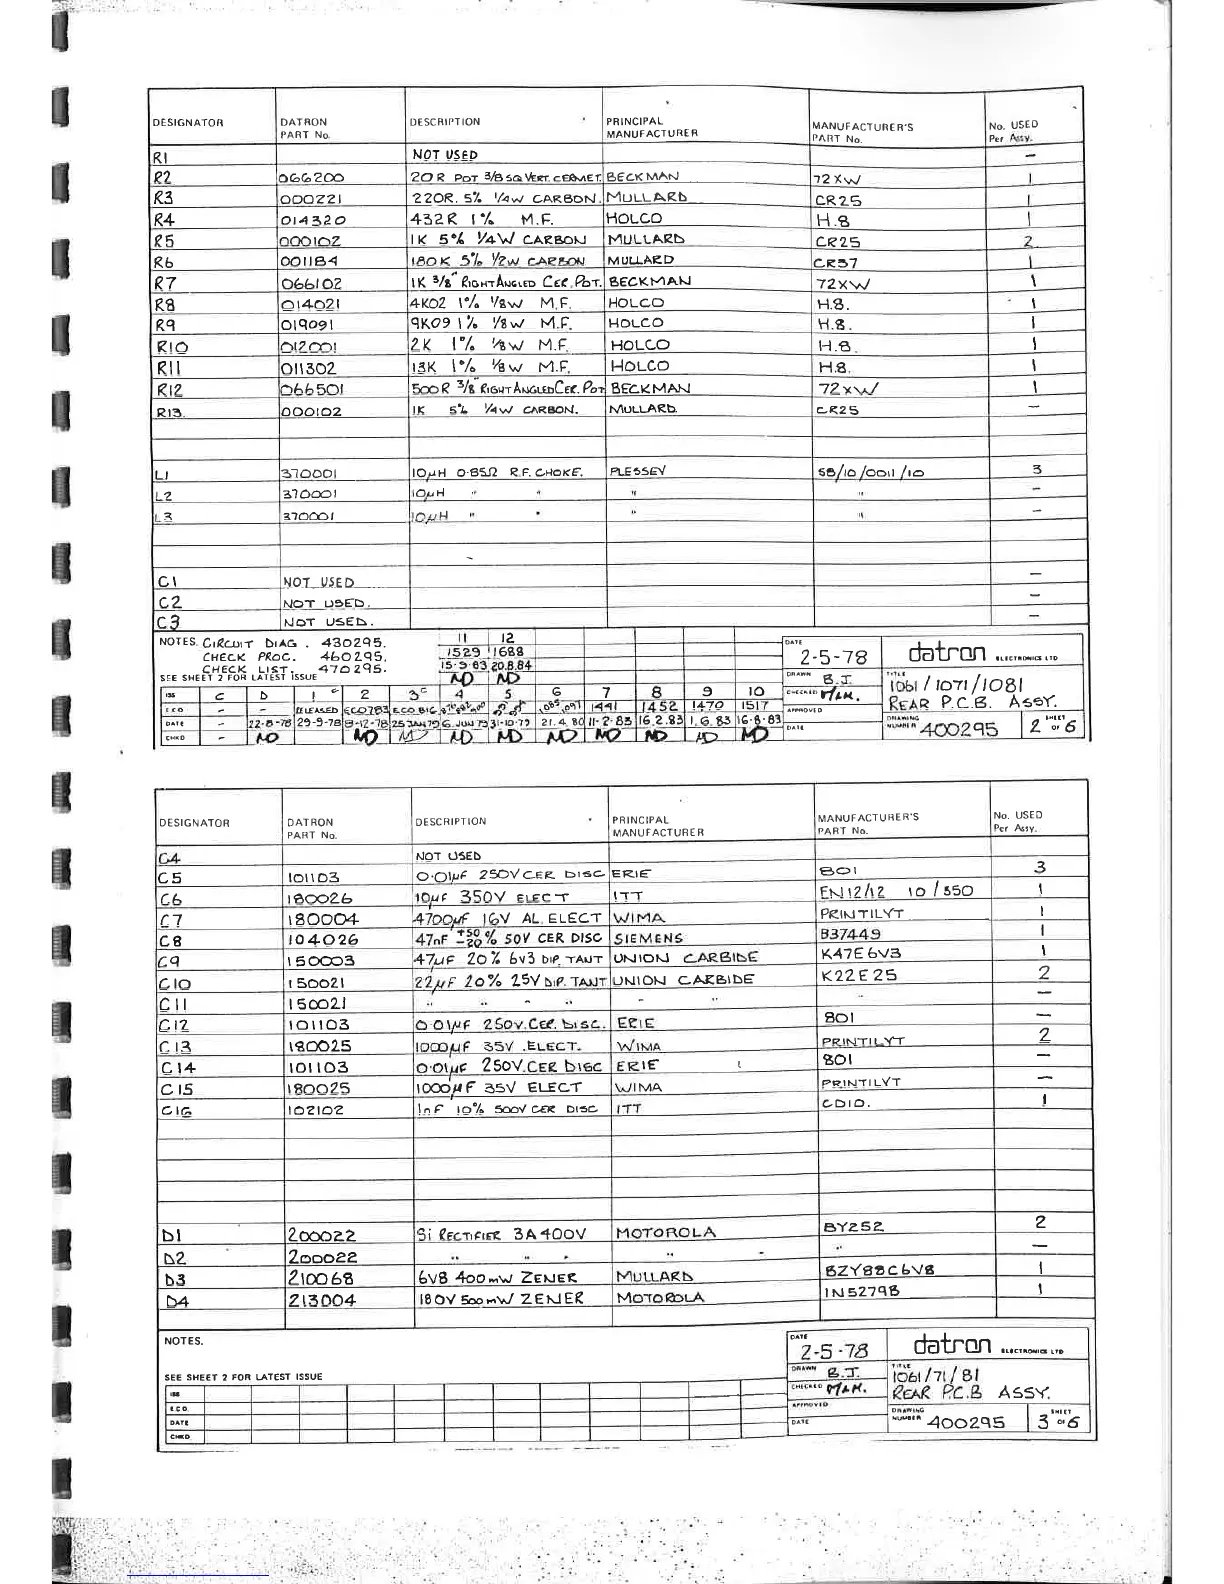 DESIGNATOR DATRON PART No. DESCRIPTION PRINCIPAL MANUFACTURER MANUFACTURER'S PART No. No. USED Per Assy.
R1 NOT USED —
R2 066200 20R POT 3/8 SQ VERT. CERMET. BECKMAN 72XW 1
R3 000221 220R. 5% 1/4W CARBON. MULLARD CR25 1
R4 014320 432R 1% M.F. HOLCO H.8 1
R5 000102 1K 5% 1/4W CARBON MULLARD CR25 2
R6 001184 180K 5% 1/2W CARBON MULLARD CR37 1
R7 066102 1K 3/8" RIGHT ANGLED CER. POT. BECKMAN 72XW 1
R8 014021 4K02 1% 1/8W M.F. HOLCO H.8. 1
R9 019091 9K09 1% 1/8W M.F. HOLCO H.8. 1
R10 012001 2K 1% 1/8W M.F. HOLCO H.8. 1
R11 011302 13K 1% 1/8W M.F. HOLCO H.8. 1
R12 066501 500R 3/8" RIGHT ANGLED CER. POT BECKMAN 72XW 1
R13. 000102 1K 5% 1/4W CARBON. MULLARD. CR25 —
L1 370001 10µH 0·85Ω R.F. CHOKE. PLESSEY 58/10/0011/10 3
L2 370001 10µH " " " " —
L3 370001 10µH " " " " —
C1 NOT USED —
C2 NOT USED. —
C3 NOT USED. —
NOTES. CIRCUIT DIAG . 430295.
CHECK PROC. 460295.
CHECK LIST. 470295.
SEE SHEET 2 FOR LATEST ISSUE
11 12
1529 1688
15·3·83 20.8.84
MD MD
ISS C D 1 c 2 3c 4 5 6 7 8 9 10
ECO - - RELEASED ECO783 E.C.O. 816 1441 1452 1470 1517
DATE 22-8-78 29-9-78 8-12-78 25 JAN 79 6 JUN 79 31-10-79 21.4.80 11-2-83 16.2.83 1.6.83 16·8·83
CHKD - MD MD MD MD MD MD MD MD MD MD
DATE 2-5-78
DRAWN B.J.
CHECKED
APPROVED
DATE
datron ELECTRONICS LTD
TITLE 1061/1071/1081
REAR P.C.B. ASSY.
DRAWING NUMBER 400295 SHEET 2 OF 6
DESIGNATOR DATRON PART No. DESCRIPTION PRINCIPAL MANUFACTURER MANUFACTURER'S PART No. No. USED Per Assy.
C4 NOT USED
C5 101103 0·01µF 250V CER. DISC ERIE 801 3
C6 180026 10µF 350V ELECT ITT EN12/12 10/350 1
C7 180004 4700µF 16V AL. ELECT WIMA PRINTILYT 1
C8 104026 47nF +50 -20 % 50V CER DISC SIEMENS B37449 1
C9 150003 47µF 20% 6v3 DIP. TANT UNION CARBIDE K47E6V3 1
C10 150021 22µF 20% 25V DIP. TANT UNION CARBIDE K22E25 2
C11 150021 " " " " " " " —
C12 101103 0·01µF 250V. CER. DISC. ERIE 801 —
C13 180025 1000µF 35V .ELECT. WIMA PRINTILYT 2
C14 101103 0·01µF 250V. CER DISC ERIE 801 —
C15 180025 1000µF 35V ELECT WIMA PRINTILYT —
C16 102102 1nF 10% 500V CER DISC ITT CD10. 1
D1 200022 Si RECTIFIER 3A 400V MOTOROLA BY252 2
D2 200022 " " " " " —
D3 210068 6V8 400mW ZENER MULLARD BZY88C6V8 1
D4 213004 180V 500mW ZENER MOTOROLA 1N5279B 1
NOTES.
SEE SHEET 2 FOR LATEST ISSUE
ISS
E.C.O.
DATE
CHKD
DATE 2-5-78
DRAWN B.J.
CHECKED
APPROVED
DATE
datron ELECTRONICS LTD
TITLE 1061/71/81
REAR P.C.B ASSY.
DRAWING NUMBER 400295 SHEET 3 OF 6